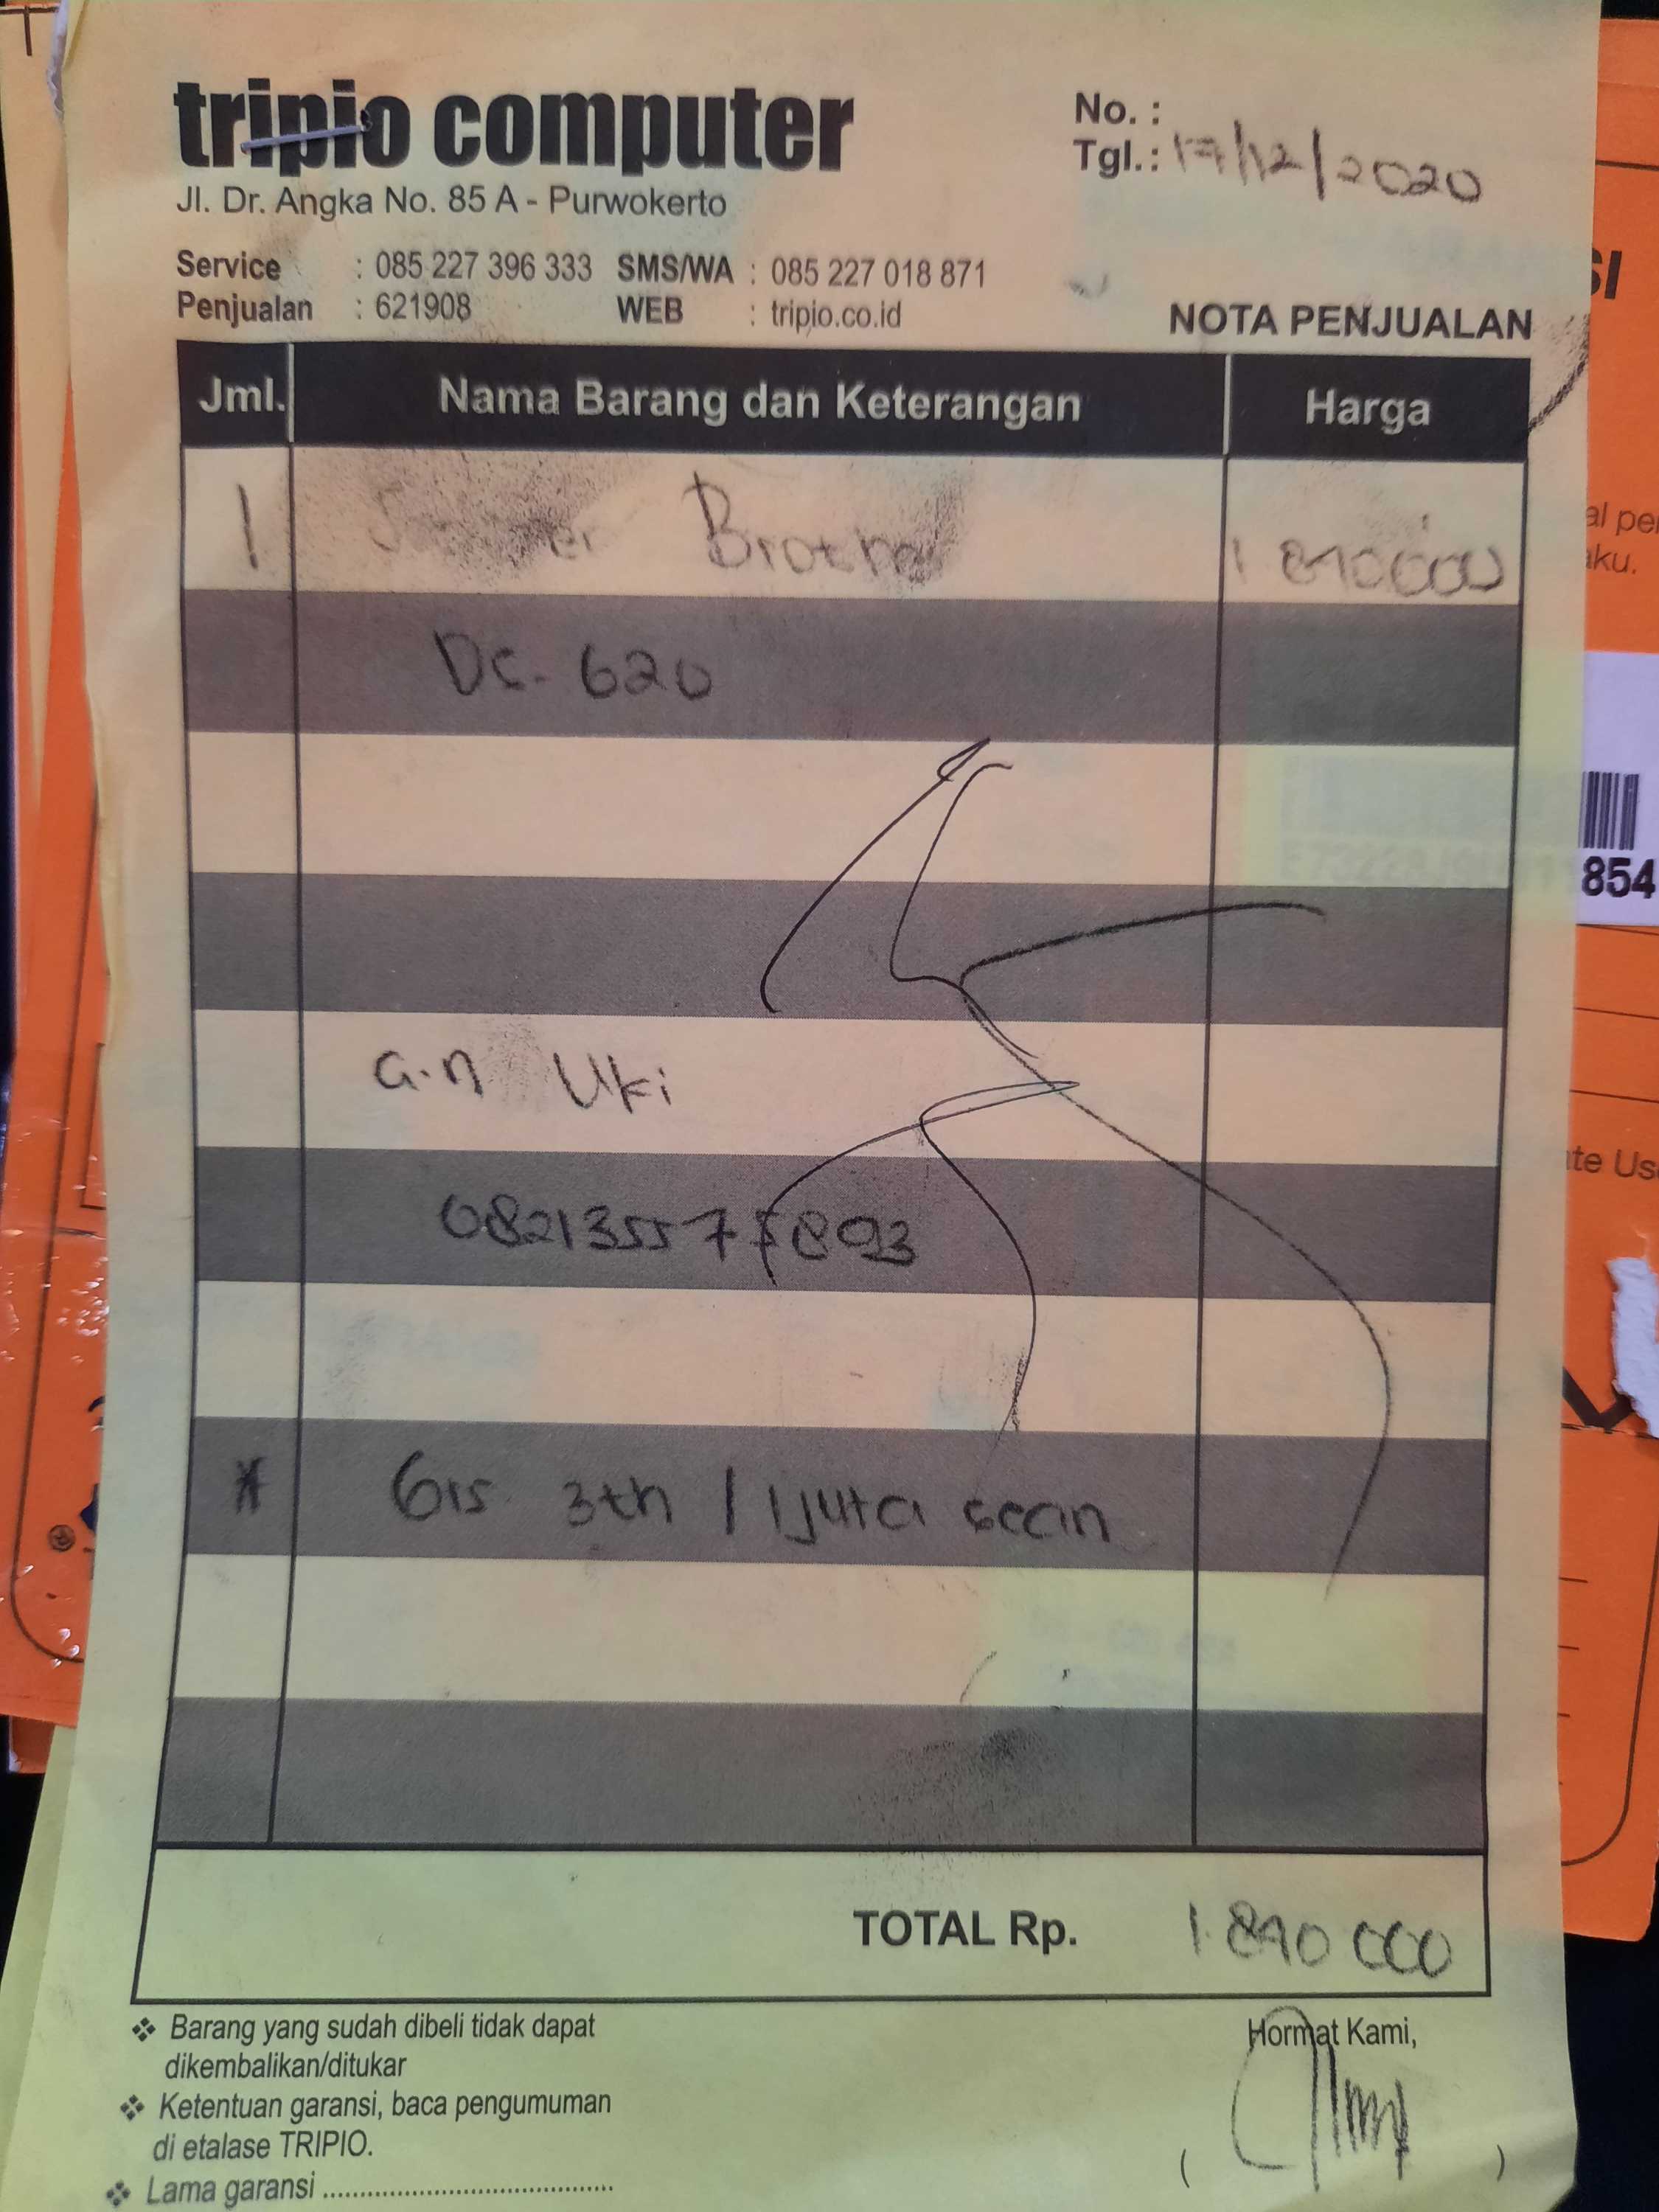 tripio computer
Jl. Dr. Angka No. 85 A - Purwokerto
No. :
Tgl.: 17/12/2020
Service : 085 227 396 333 SMS/WA : 085 227 018 871
Penjualan : 621908 WEB : tripio.co.id
NOTA PENJUALAN
Jml. Nama Barang dan Keterangan Harga
1 Brother 1 890000
DS-620
a.n Uki
* Grs 3th / 1juta scan
TOTAL Rp. 1.890 000
❖ Barang yang sudah dibeli tidak dapat
dikembalikan/ditukar
❖ Ketentuan garansi, baca pengumuman
di etalase TRIPIO.
❖ Lama garansi ........................................
Hormat Kami,
( )
854